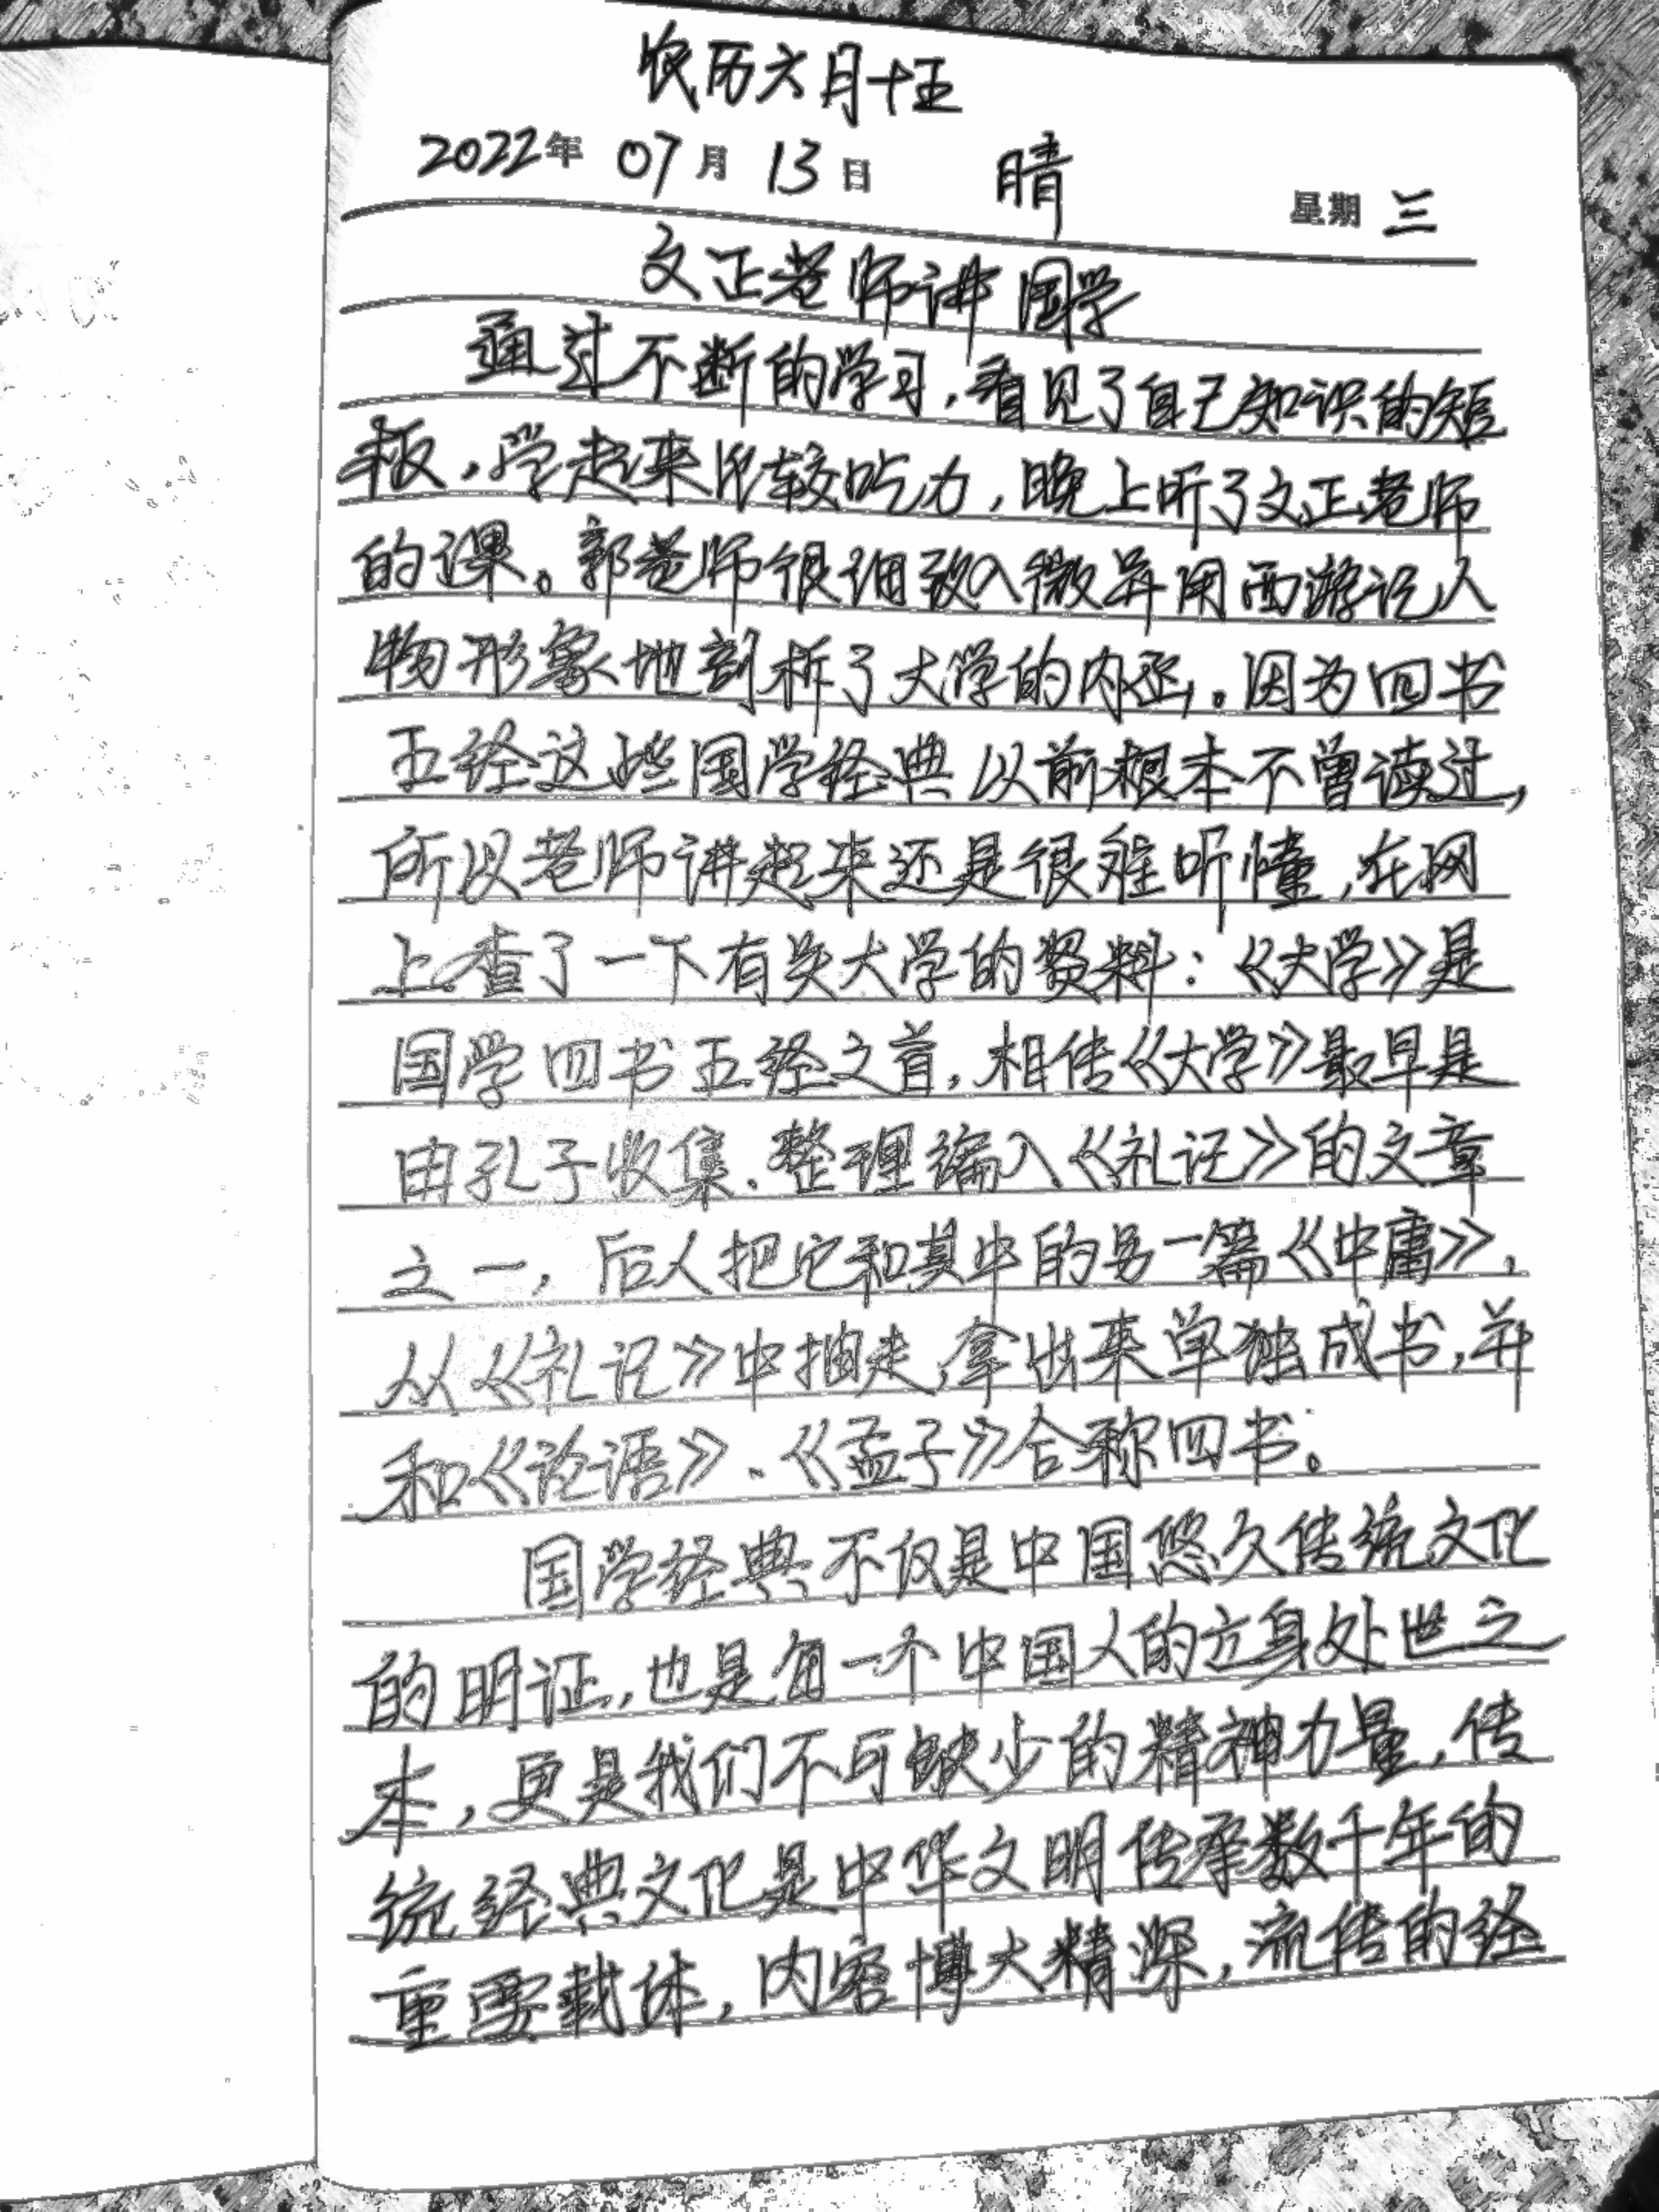 农历六月十五
2022年 07月 13日 晴 星期三
文正老师讲国学
通过不断的学习,看见了自己知识的短
板,学起来比较吃力,晚上听了文正老师
的课。郭老师很细致入微并用西游记人
物形象地剖析了大学的内函。因为四书
五经这些国学经典以前根本不曾读过,
所以老师讲起来还是很难听懂,在网
上查了一下有关大学的资料:《大学》是
国学四书五经之首,相传《大学》最早是
由孔子收集、整理编入《礼记》的文章
之一,后人把它和其中的另一篇《中庸》,
从《礼记》中抽走,拿出来单独成书,并
和《论语》、《孟子》合称四书。
国学经典不仅是中国悠久传统文化
的明证,也是每一个中国人的立身处世之
本,更是我们不可缺少的精神力量,传
统经典文化是中华文明传承数千年的
重要载体,内容博大精深,流传的经